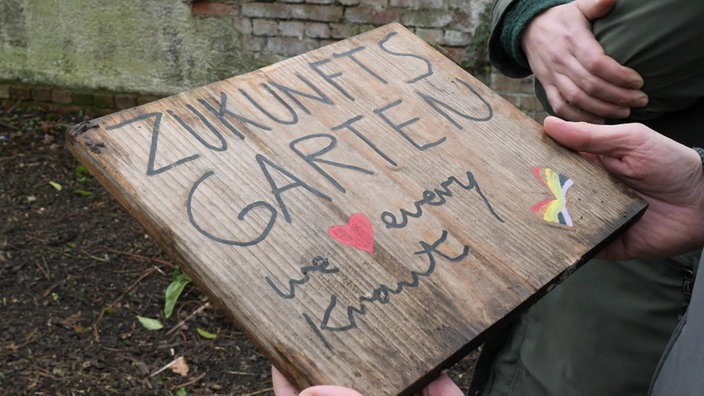 ZUKUNFTS
GARTEN
we ❤ every
Kraut